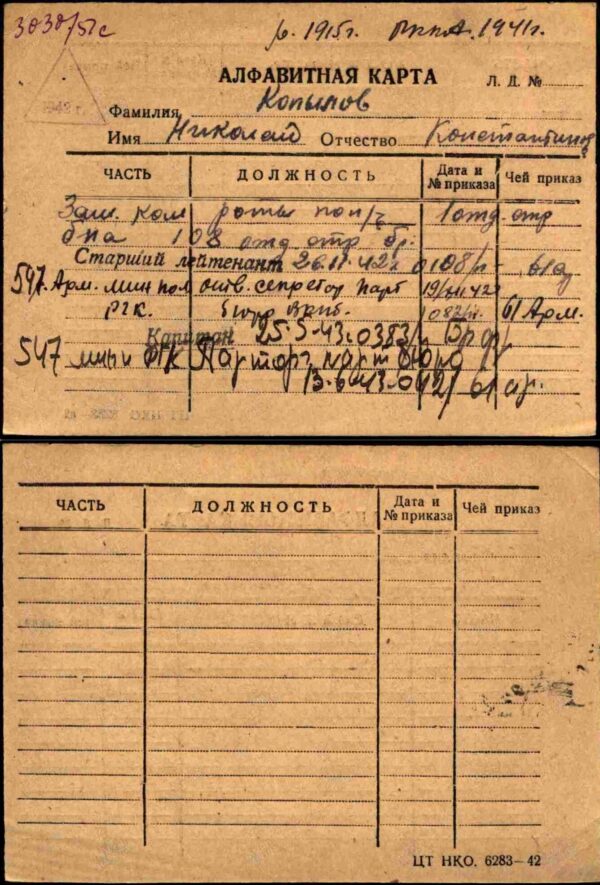 3030/51с
р. 1915г. РККА. 1941г.
АЛФАВИТНАЯ КАРТА Л. Д. №
Фамилия Копылов
Имя Николай Отчество Константинов
ЧАСТЬ ДОЛЖНОСТЬ Дата и № приказа Чей приказ
Зам. Ком роты по п/ч 1 отд. отр
б-на 108 отд. стр. бр.
Старший лейтенант 26.11.42г. 0108/н 61 а
547. Арм. мин пол отв. секретар парт 19/XII 42г
РГК. бюро 1082/н. 61 Арм.
Капитан 25.5.43. 0383/н Бр. ф.
547 мин п РГК Парторг парт бюро
13.6.43. 0421 61 ар.
ЧАСТЬ ДОЛЖНОСТЬ Дата и № приказа Чей приказ
ЦТ НКО. 6283—42